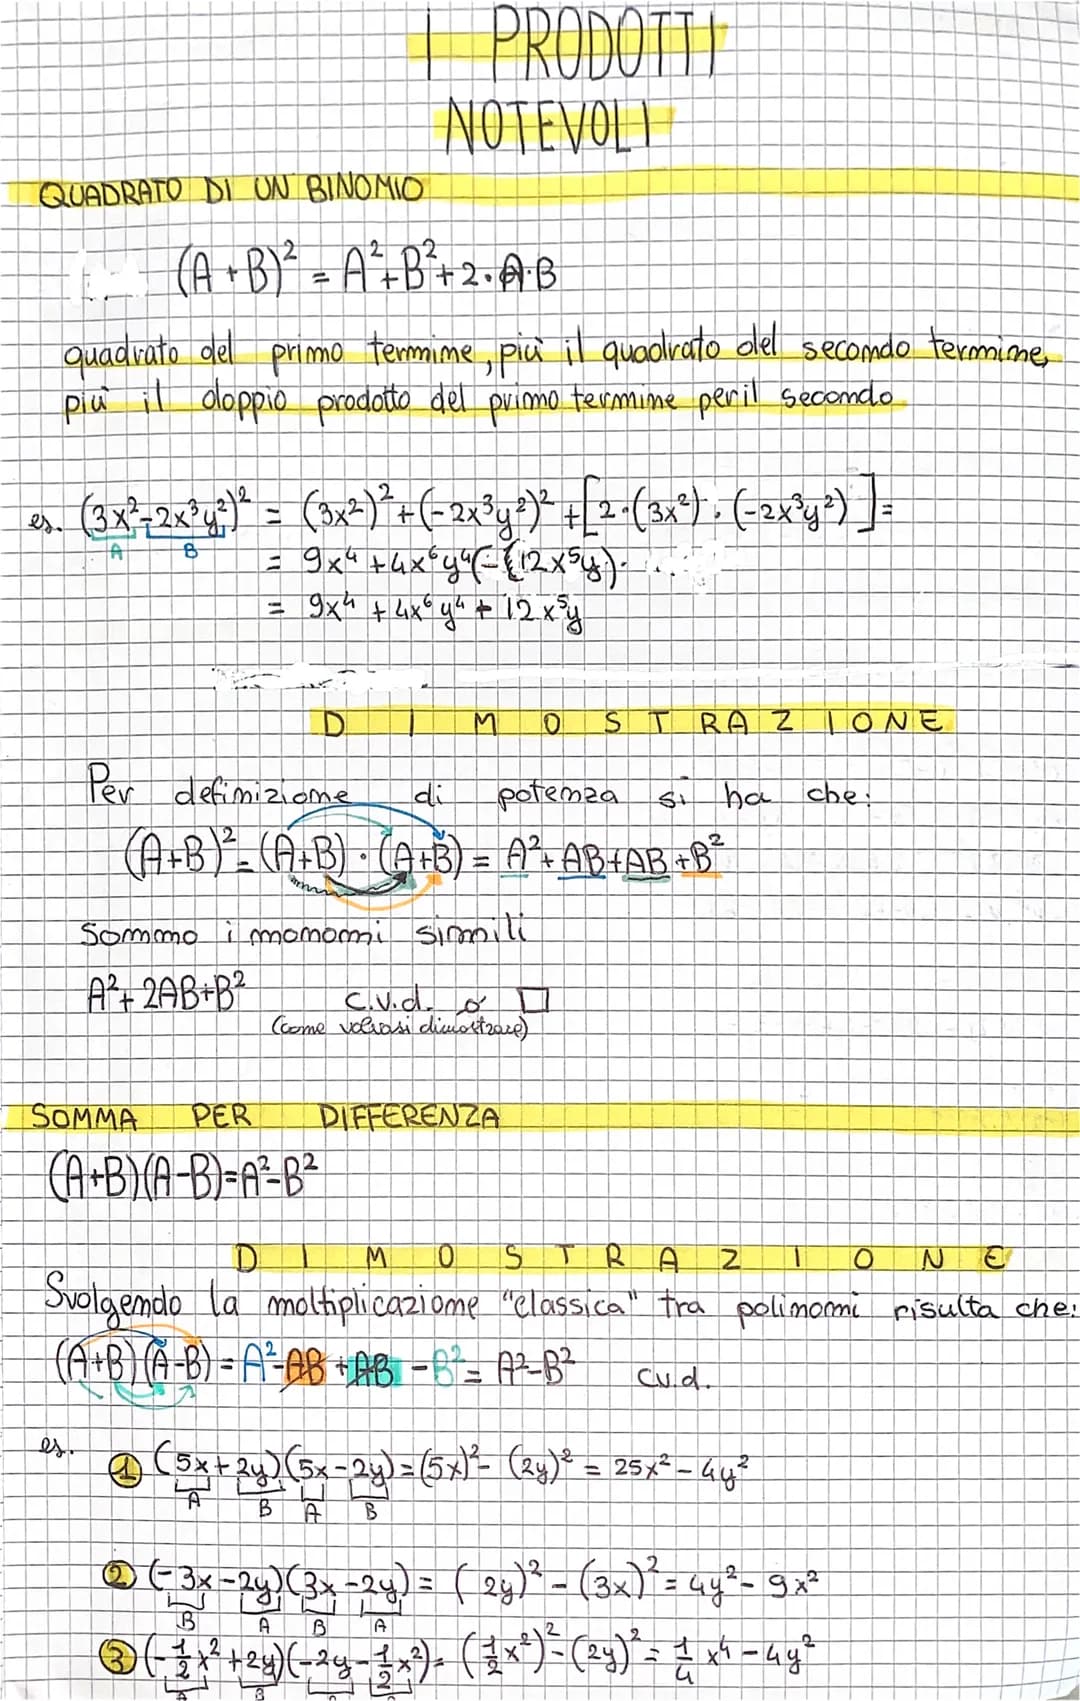 I PRODOTTI
NOTEVOLI
QUADRATO DI UN BINOMIO
(A+B)² = A²+B²+2·A·B
quadrato del primo termine, più il quadrato del secondo termine,
più il doppio prodotto del primo termine per il secondo
es. (3x²-2x³y²)² = (3x²)²+(-2x³y²)²+[2·(3x²)·(-2x³y²)]=
A B
= 9x⁴+4x⁶y⁴(-(12x⁵y).
= 9x⁴+4x⁶y⁴+12x⁵y
DIMOSTRAZIONE
Per definizione di potenza si ha che:
(A+B)²=(A+B)·(A+B)=A²+AB+AB+B²
Sommo i monomi simili
A²+2AB+B² c.v.d. o □
(come volevasi dimostrare)
SOMMA PER DIFFERENZA
(A+B)(A-B)=A²-B²
DIMOSTRAZIONE
Svolgendo la moltiplicazione "classica" tra polinomi risulta che:
(A+B)(A-B)=A²-AB+AB-B²=A²-B² cv.d.
es.
1 (5x+2y)(5x-2y)=(5x)²-(2y)²=25x²-4y²
A B A B
2 (-3x-2y)(3x-2y)=(2y)²-(3x)²=4y²-9x²
B A B A
3 (-1/2x²+2y)(-2y-1/2x²)=(1/2x²)²-(2y)²=1/4x⁴-4y²